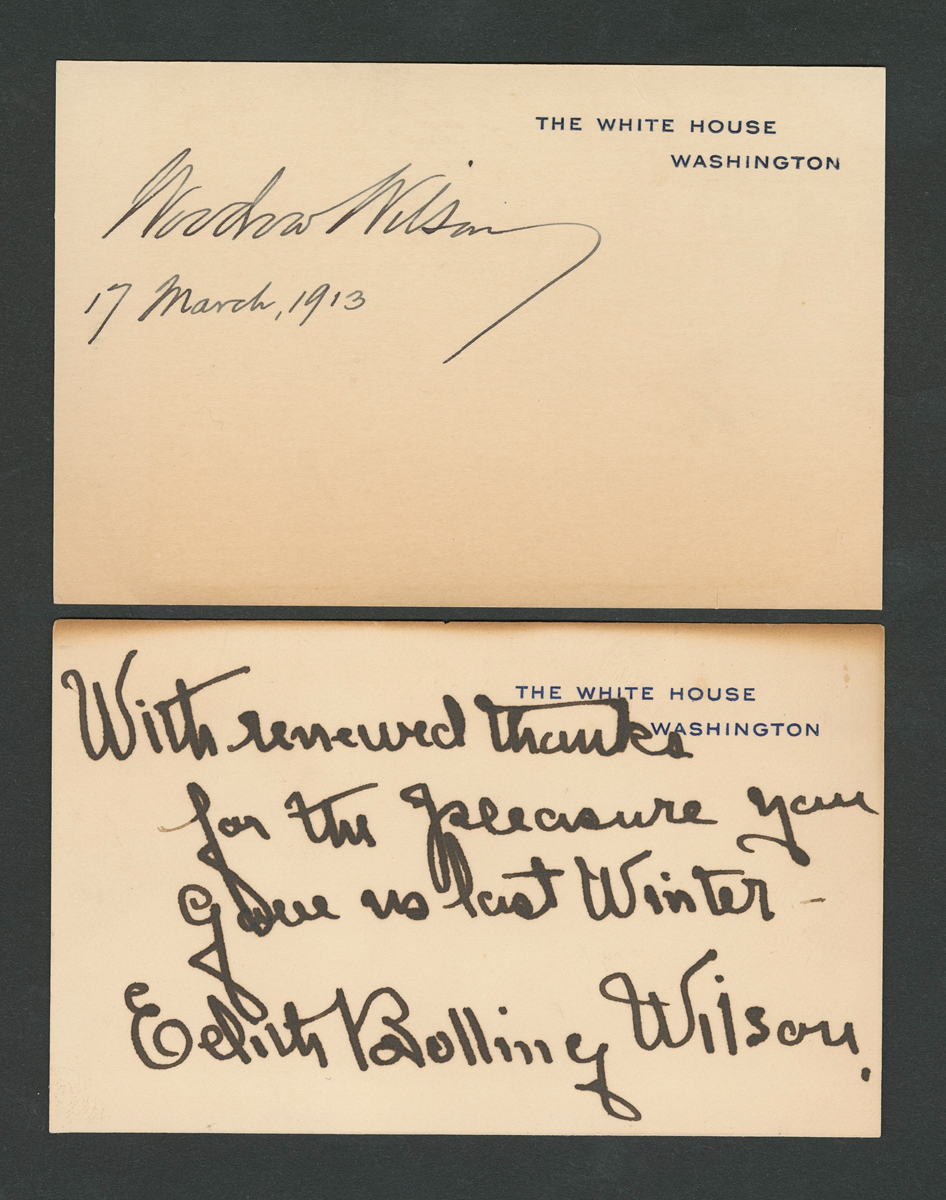 THE WHITE HOUSE
WASHINGTON
Woodrow Wilson
17 March, 1913
THE WHITE HOUSE
WASHINGTON
With renewed thanks
for the pleasure you
gave us last Winter -
Edith Bolling Wilson.